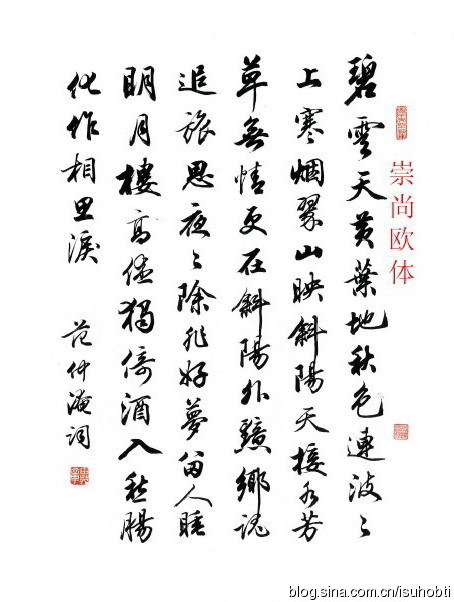 崇尚欧体
碧雲天黄葉地秋色連波〻
上寒烟翠山映斜陽天接水芳
草無情更在斜陽外黯鄉魂
追旅思夜〻除非好夢留人睡
明月樓高休獨倚酒入愁腸
化作相思淚
范仲淹詞
blog.sina.com.cn/isuhobti